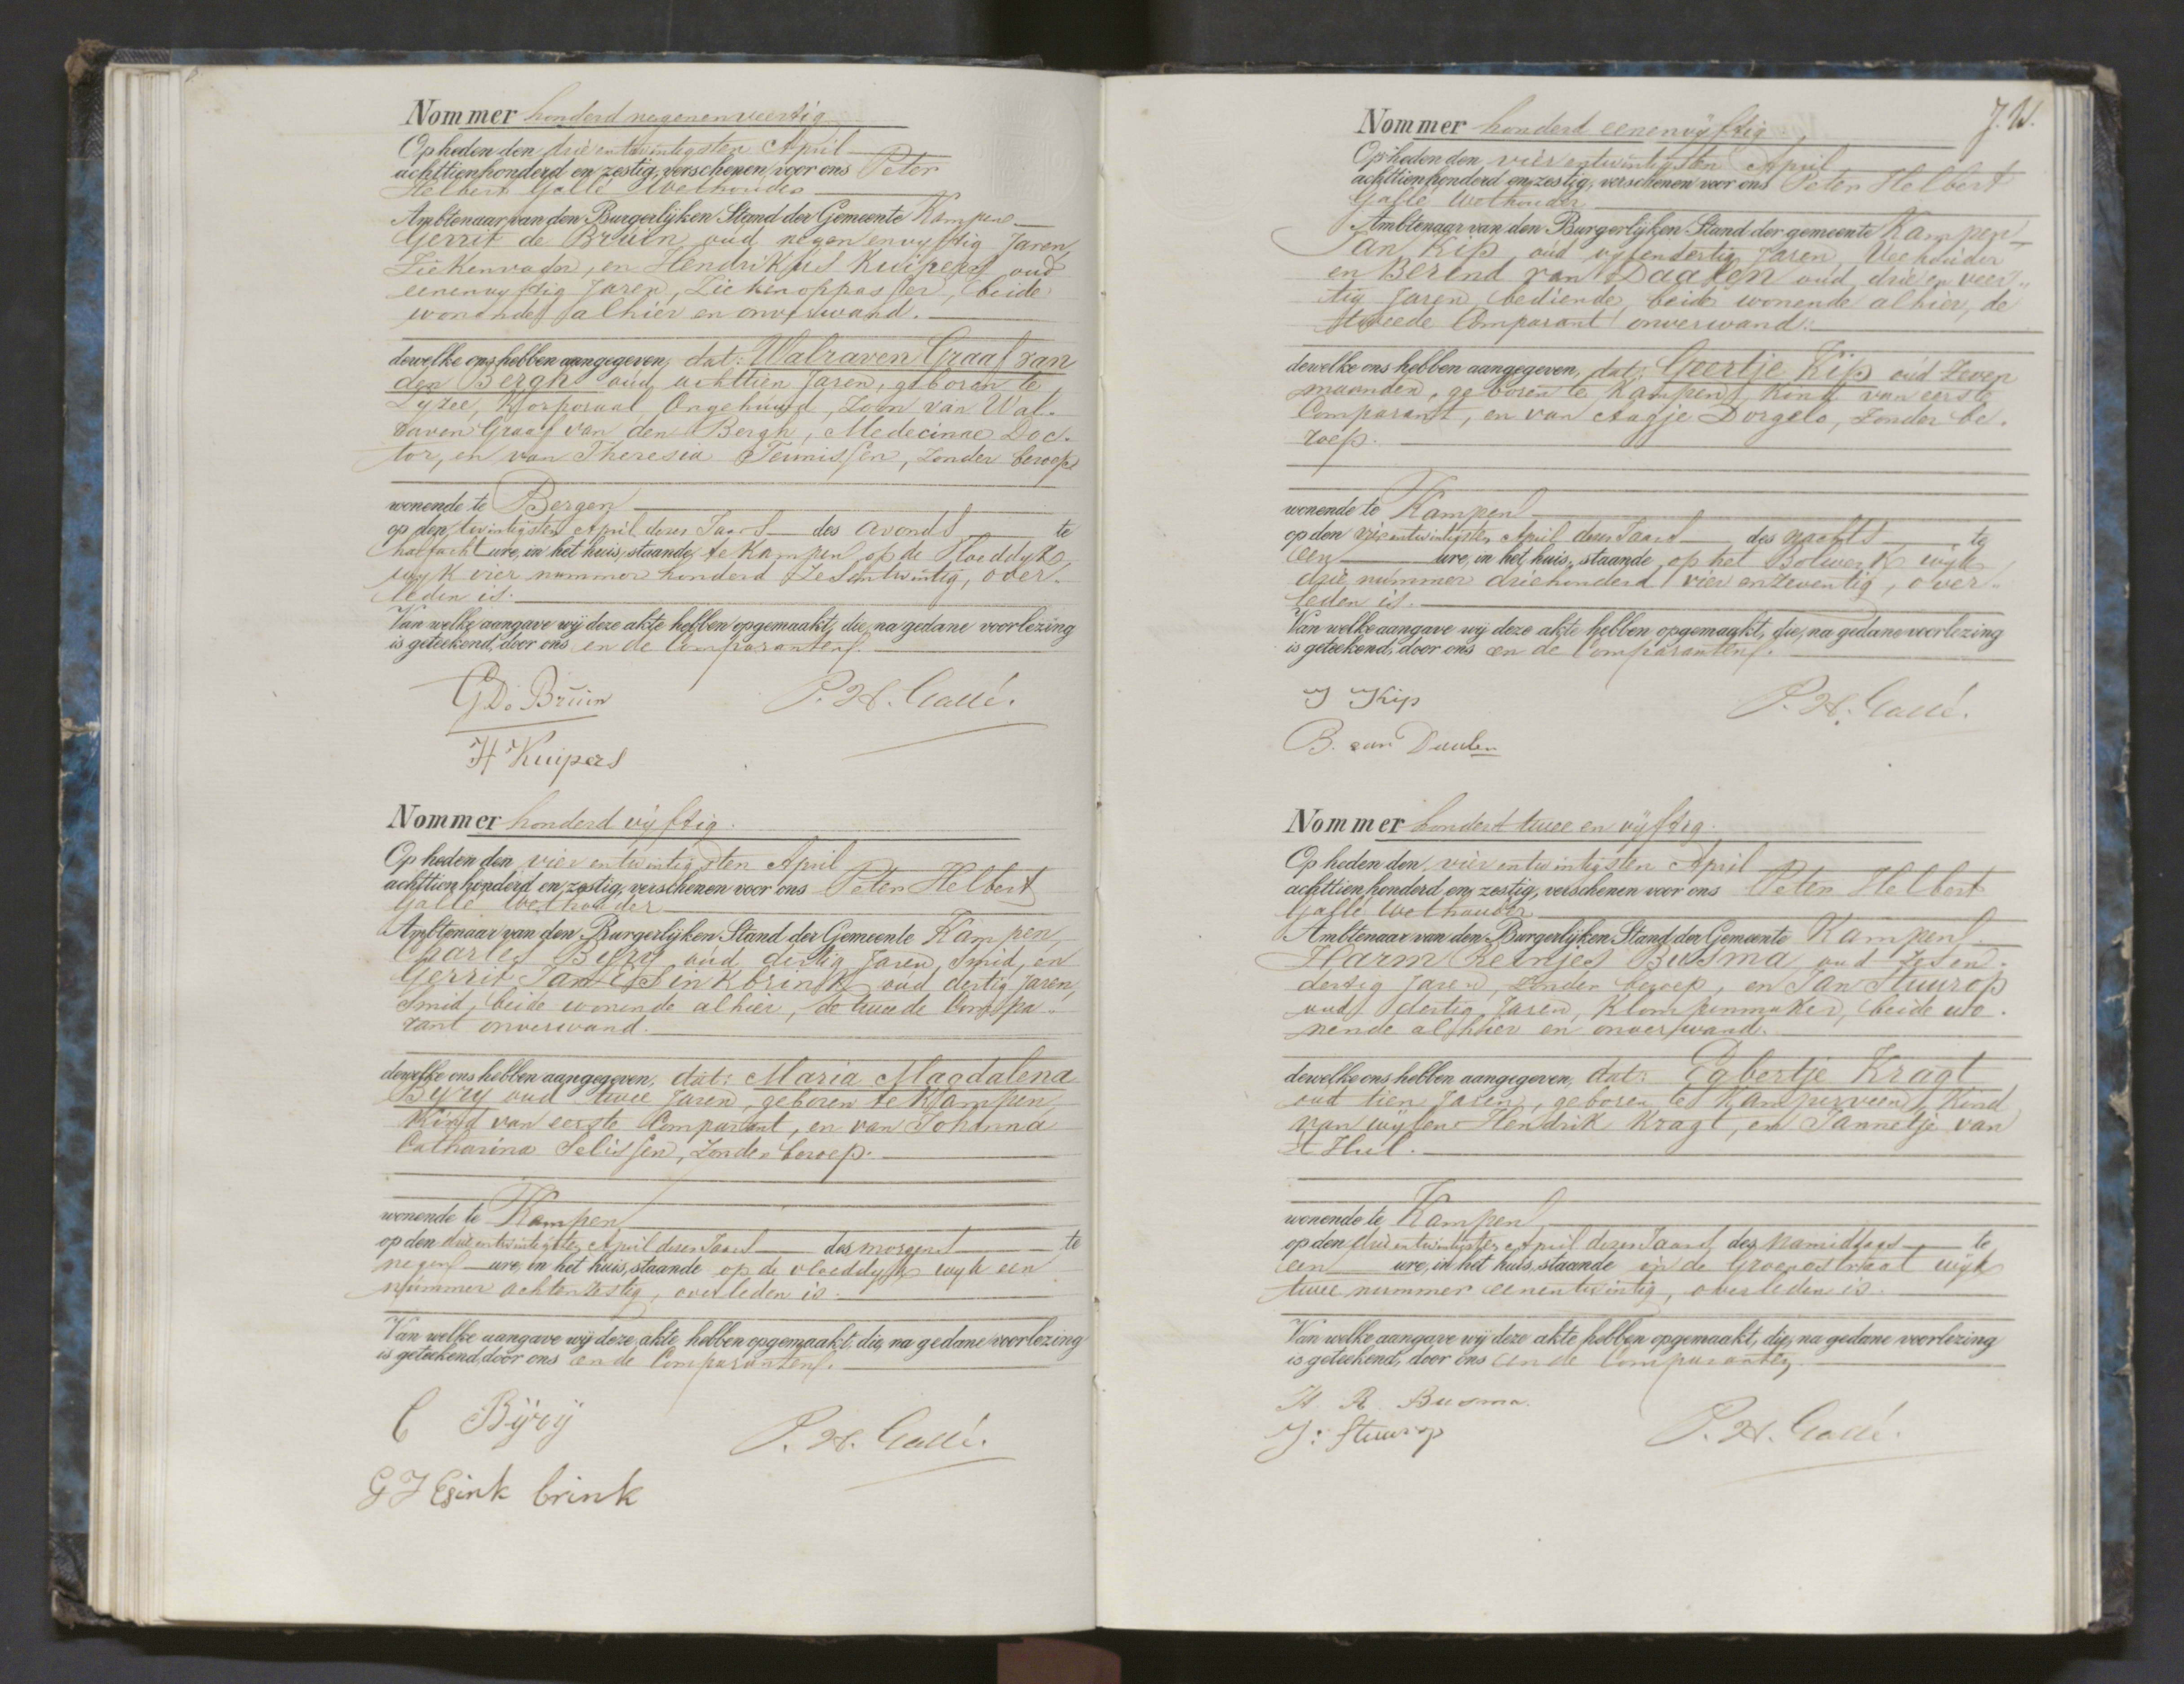 Nommer honderd negenenveertig
Op heden den drie entwintigsten April
achttienhonderd en zestig, verschenen voor ons Peter
Helbert Gallé Wethouder
Ambtenaar van den Burgerlijken Stand der Gemeente Kampen
Gerrit de Bruin oud negenenvyftig Jaren,
Ziekenvader, en Hendrikus Kuipers oud
eenenvyftig Jaren, Ziekenoppasser, beide
wonende alhier en onverwand.
dewelke ons hebben aangegeven, dat: Walraven Graaf van
den Bergh oud achttien Jaren, geboren te
Korporaal Ongehuwd, Zoon van Wal-
raven Graaf van den Bergh, Medecinae Doc-
tor, en van Theresia Teunissen, zonder beroep
wonende te Bergen
op den twintigsten April dezes Jaars des avonds te
half acht ure, in het huis, staande te Kampen op de Vloeddyk
wyk vier nummer honderd Zesentwintig, over-
leden is.
Van welke aangave wij deze akte hebben opgemaakt, die, na gedane voorlezing
is geteekend, door ons en de Comparanten.
G De Bruin P. H. Gallé.
H Kuipers
Nommer honderd vyftig.
Op heden den vier entwintigsten April
achttien honderd en zestig, verschenen voor ons Peter Helbert
Gallé Wethouder
Ambtenaar van den Burgerlijken Stand der Gemeente Kampen,
Charles Byry oud dertig Jaren, Smid, en
Gerrit Jan Essinkbrink oud dertig Jaren,
Smid, beide wonende alhier, de tweede Compa-
rant onverwand.
dewelke ons hebben aangegeven, dat: Maria Magdalena
Byry oud twee Jaren, geboren te Kampen,
Kind van eerste Comparant, en van Johanna
Catharina Selissen, Zonder beroep.
wonende te Kampen
op den drieentwintigsten April dezes Jaars des morgens te
negen ure, in het huis, staande op de vloeddyk wyk een
nummer achtenzestig, overleden is.
Van welke aangave wij deze akte hebben opgemaakt, die, na gedane voorlezing
is geteekend, door ons en de Comparanten.
C Bÿrÿ P. H. Gallé.
G J Esink brink
J. W.
Nommer honderd eenenvyftig
Op heden den vierentwintigsten April
achttienhonderd en zestig, verschenen voor ons Peter Helbert
Gallé Wethouder
Ambtenaar van den Burgerlijken Stand der gemeente Kampen
Jan Kip, oud vyfendertig Jaren, Veehouder
en Berend van Daalen oud drie en veer-
tig Jaren, bediende, beide wonende alhier, de
tweede Comparant onverwand.
dewelke ons hebben aangegeven, dat: Geertje Kip oud Zeven
maanden, geboren te Kampen, Kind van eerste
Comparant, en van Aagje Dorgelo, zonder be-
roep.
wonende te Kampen
op den vierentwintigsten April dezes Jaars des nachts te
een ure, in het huis, staande op het Bolwerk wyk
drie nummer driehonderd vier enzeventig, over-
leden is.
Van welke aangave wij deze akte hebben opgemaakt, die, na gedane voorlezing
is geteekend, door ons en de Comparanten.
J Kip P. H. Gallé.
B. van Daalen
Nommer honderd twee en vyftig.
Op heden den vierentwintigsten April
achttien honderd en zestig, verschenen voor ons Peter Helbert
Gallé Wethouder
Ambtenaar van den Burgerlijken Stand der Gemeente Kampen
Harm Reinjes Busma oud zesen-
dertig Jaren, zonder beroep, en Jan Stuurop
oud dertig Jaren, Klompenmaker, beide wo-
nende alhier en onverwand.
dewelke ons hebben aangegeven, dat: Egbertje Kragt
oud tien Jaren, geboren te Kamperveen, Kind
van wylen Hendrik Kragt, en Jannetje van
't Hul.
wonende te Kampen
op den drieentwintigsten April dezes Jaars des Namiddags te
een ure, in het huis, staande in de Groenestraat wyk
twee nummer eenentwintig, overleden is.
Van welke aangave wij deze akte hebben opgemaakt, die, na gedane voorlezing
is geteekend, door ons en de Comparanten.
H. R. Busma.
J: Stuurop P. H. Gallé.